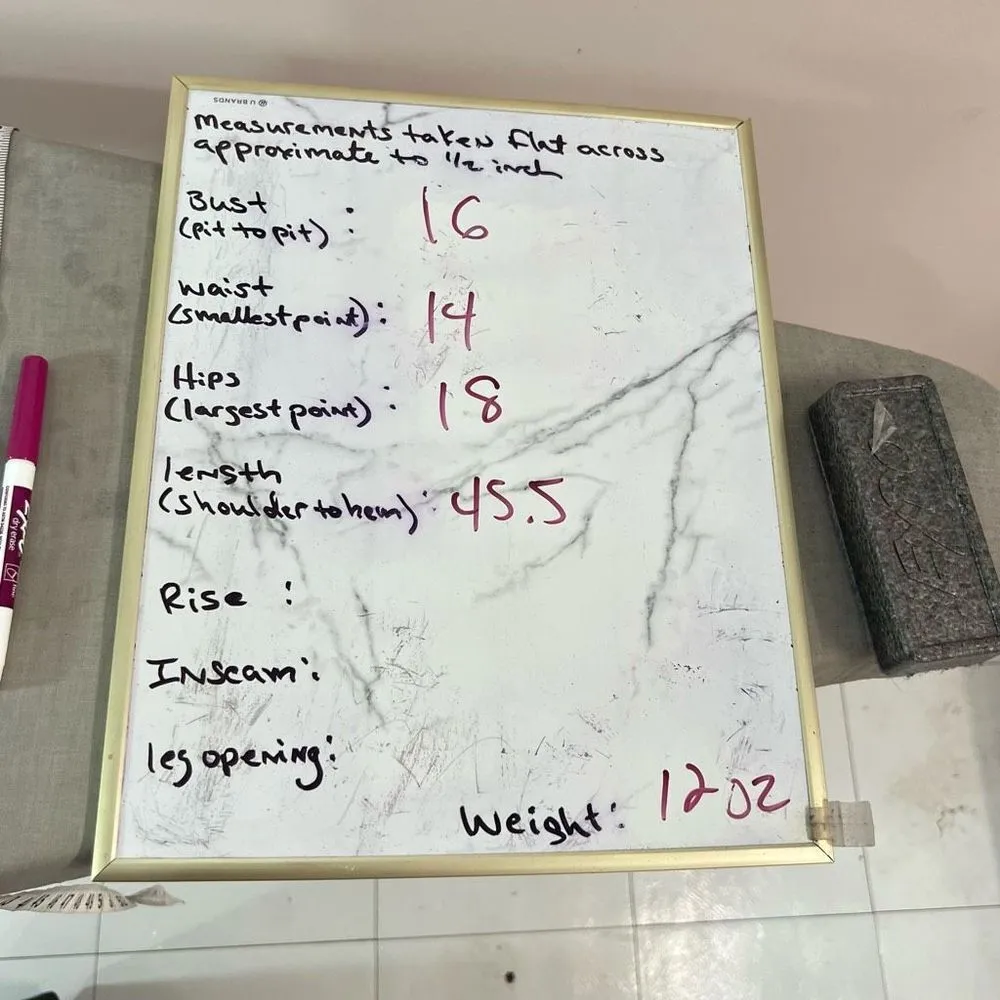 U BRANDS
Measurements taken flat across
approximate to 1/2 inch
Bust
(pit to pit) : 16
waist
(smallest point): 14
Hips
(largest point) : 18
length
(shoulder to hem) : 45.5
Rise :
Inseam:
leg opening:
Weight: 12 oz
EXPO
dry erase
EXPO